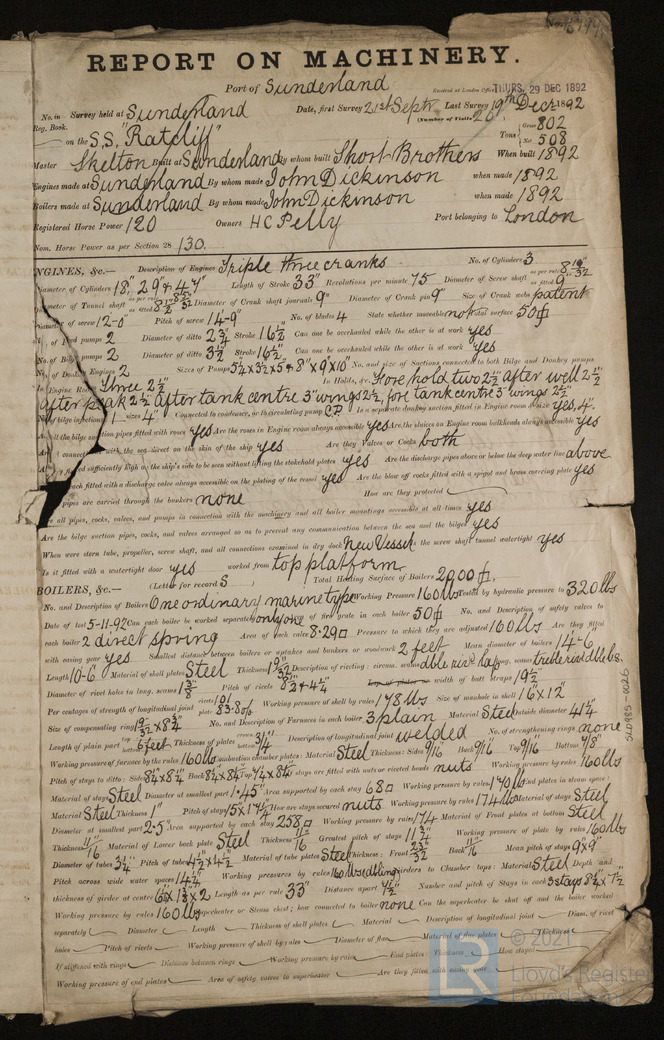 REPORT ON MACHINERY.
Port of Sunderland
Received at London Office THURS. 29 DEC 1892
No. in Survey held at Sunderland Date, first Survey 21st Septr Last Survey 19th Decr 1892
Reg. Book. (Number of Visits 20)
on the S.S. "Ratcliff" Tons Gross 802 Net 508
Master Skelton Built at Sunderland By whom built Short Brothers When built 1892
Engines made at Sunderland By whom made John Dickinson when made 1892
Boilers made at Sunderland By whom made John Dickinson when made 1892
Registered Horse Power 120 Owners H C Pelly Port belonging to London
Nom. Horse Power as per Section 28 130.
ENGINES, &c.— Description of Engines Triple three cranks No. of Cylinders 3
Diameter of Cylinders 18", 29" & 47" Length of Stroke 33" Revolutions per minute 75 Diameter of Screw shaft as per rule as fitted 9"
Diameter of Tunnel shaft as per rule as fitted Diameter of Crank shaft journals 9" Diameter of Crank pin 9" Size of Crank webs patent
Diameter of screw 12-0" Pitch of screw 14-9" No. of blades 4 State whether moveable not total surface 50
No. of Feed pumps 2 Diameter of ditto 2 3/4 Stroke 16 1/2 Can one be overhauled while the other is at work yes
No. of Bilge pumps 2 Diameter of ditto 3 1/2 Stroke 16 1/2" Can one be overhauled while the other is at work yes
No. of Donkey Engines 2 Sizes of Pumps 5 1/4 x 3 1/2 x 5 & 8" x 9" x 10" No. and size of Suctions connected to both Bilge and Donkey pumps
In Engine Room Three 2 1/2" In Holds, &c. Stokehold two 2 1/2 After well 2 1/2
After peak 2 1/2 After tank centre 3" wings 2 1/2, fore tank centre 3" wings 2 1/2
No. of bilge injections 1 sizes 4" Connected to condenser, or to circulating pump C.P. Is a separate donkey suction fitted in Engine room & size yes, 4"
Are all the bilge suction pipes fitted with roses yes Are the roses in Engine room always accessible yes Are the sluices on Engine room bulkheads always accessible yes
Are all connections with the sea direct on the skin of the ship yes Are they Valves or Cocks both
Are they fixed sufficiently high on the ship's side to be seen without lifting the stokehold plates yes Are the discharge pipes above or below the deep water line above
Are they each fitted with a discharge valve always accessible on the plating of the vessel yes Are the blow off cocks fitted with a spigot and brass covering plate yes
What pipes are carried through the bunkers none How are they protected
Are all pipes, cocks, valves, and pumps in connection with the machinery and all boiler mountings accessible at all times yes
Are the bilge suction pipes, cocks, and valves arranged so as to prevent any communication between the sea and the bilges yes
When were stern tube, propeller, screw shaft, and all connections examined in dry dock New Vessel Is the screw shaft tunnel watertight yes
Is it fitted with a watertight door yes worked from top platform
BOILERS, &c.— (Letter for record S) Total Heating Surface of Boilers 2000
No. and Description of Boilers One ordinary marine type Working Pressure 160 lbs Tested by hydraulic pressure to 320 lbs
Date of test 5-11-92 Can each boiler be worked separately only one Area of fire grate in each boiler 50 No. and Description of safety valves to
each boiler 2 direct spring Area of each valve 8.29 Pressure to which they are adjusted 160 lbs Are they fitted
with easing gear yes Smallest distance between boilers or uptakes and bunkers or woodwork 2 feet Mean diameter of boilers 14-6"
Length 10-6" Material of shell plates Steel Thickness 19/32 Description of riveting: circum. seams dble rivd lap long. seams treble rivd dble b.s.
Diameter of rivet holes in long. seams Pitch of rivets 8 1/2 & 4 1/4 width of butt straps 19 1/2
Per centages of strength of longitudinal joint rivets 101 plate 83.8% Working pressure of shell by rules 178 lbs Size of manhole in shell 16" x 12"
Size of compensating ring No. and Description of Furnaces in each boiler 3 plain Material Steel Outside diameter 41 1/4
Length of plain part 6 feet Thickness of plates 3/4 Description of longitudinal joint welded No. of strengthening rings none
Working pressure of furnace by the rules 160 lbs Combustion chamber plates: Material Steel Thickness: Sides 9/16 Back 9/16 Top 9/16 Bottom 7/8
Pitch of stays to ditto: Sides 8 1/4 x 8 1/4 Back 8 1/4 x 8 1/4 Top 7 1/4 x 8 1/4 If stays are fitted with nuts or riveted heads nuts Working pressure by rules 160 lbs
Material of stays Steel Diameter at smallest part 1.45" Area supported by each stay 68 Working pressure by rules 170 lbs End plates in steam space:
Material Steel Thickness 1" Pitch of stays 15" x 17 1/4 How are stays secured nuts Working pressure by rules 174 lbs Material of stays Steel
Diameter at smallest part 2.5" Area supported by each stay 258 Working pressure by rules 174 Material of Front plates at bottom Steel
Thickness 11/16 Material of Lower back plate Steel Thickness 11/16 Greatest pitch of stays 11 3/4 Working pressure of plate by rules 160 lbs
Diameter of tubes 3 1/4 Pitch of tubes 4 1/2 x 4 1/2 Material of tube plates Steel Thickness: Front 25/32 Back 11/16 Mean pitch of stays 9 x 9"
Pitch across wide water spaces 14 1/4 Working pressures by rules 160 lbs dbling Girders to Chamber tops: Material Steel Depth and
thickness of girder at centre Length as per rule 33" Distance apart 7 1/2" Number and pitch of Stays in each 3 stays 8 1/4 x 7 1/2
Working pressure by rules 160 lbs Superheater or Steam chest; how connected to boiler none Can the superheater be shut off and the boiler worked
separately Diameter Length Thickness of shell plates Material Description of longitudinal joint Diam. of rivet
holes Pitch of rivets Working pressure of shell by rules Diameter of flue Material of flue plates Thickness
If stiffened with rings Distance between rings Working pressure by rules End plates: Thickness How stayed
Working pressure of end plates Area of safety valves to superheater Are they fitted with easing gear
SLD985-0026
LR
© 2021
Lloyd's Register
Foundation